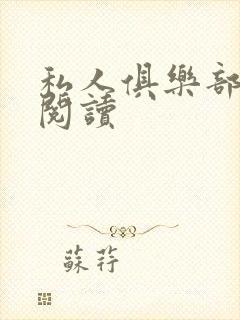 私人俱樂部
閱讀
蘇荇